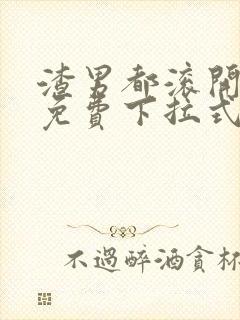 渣男都滚開
免費下拉式
不過醉酒貪杯